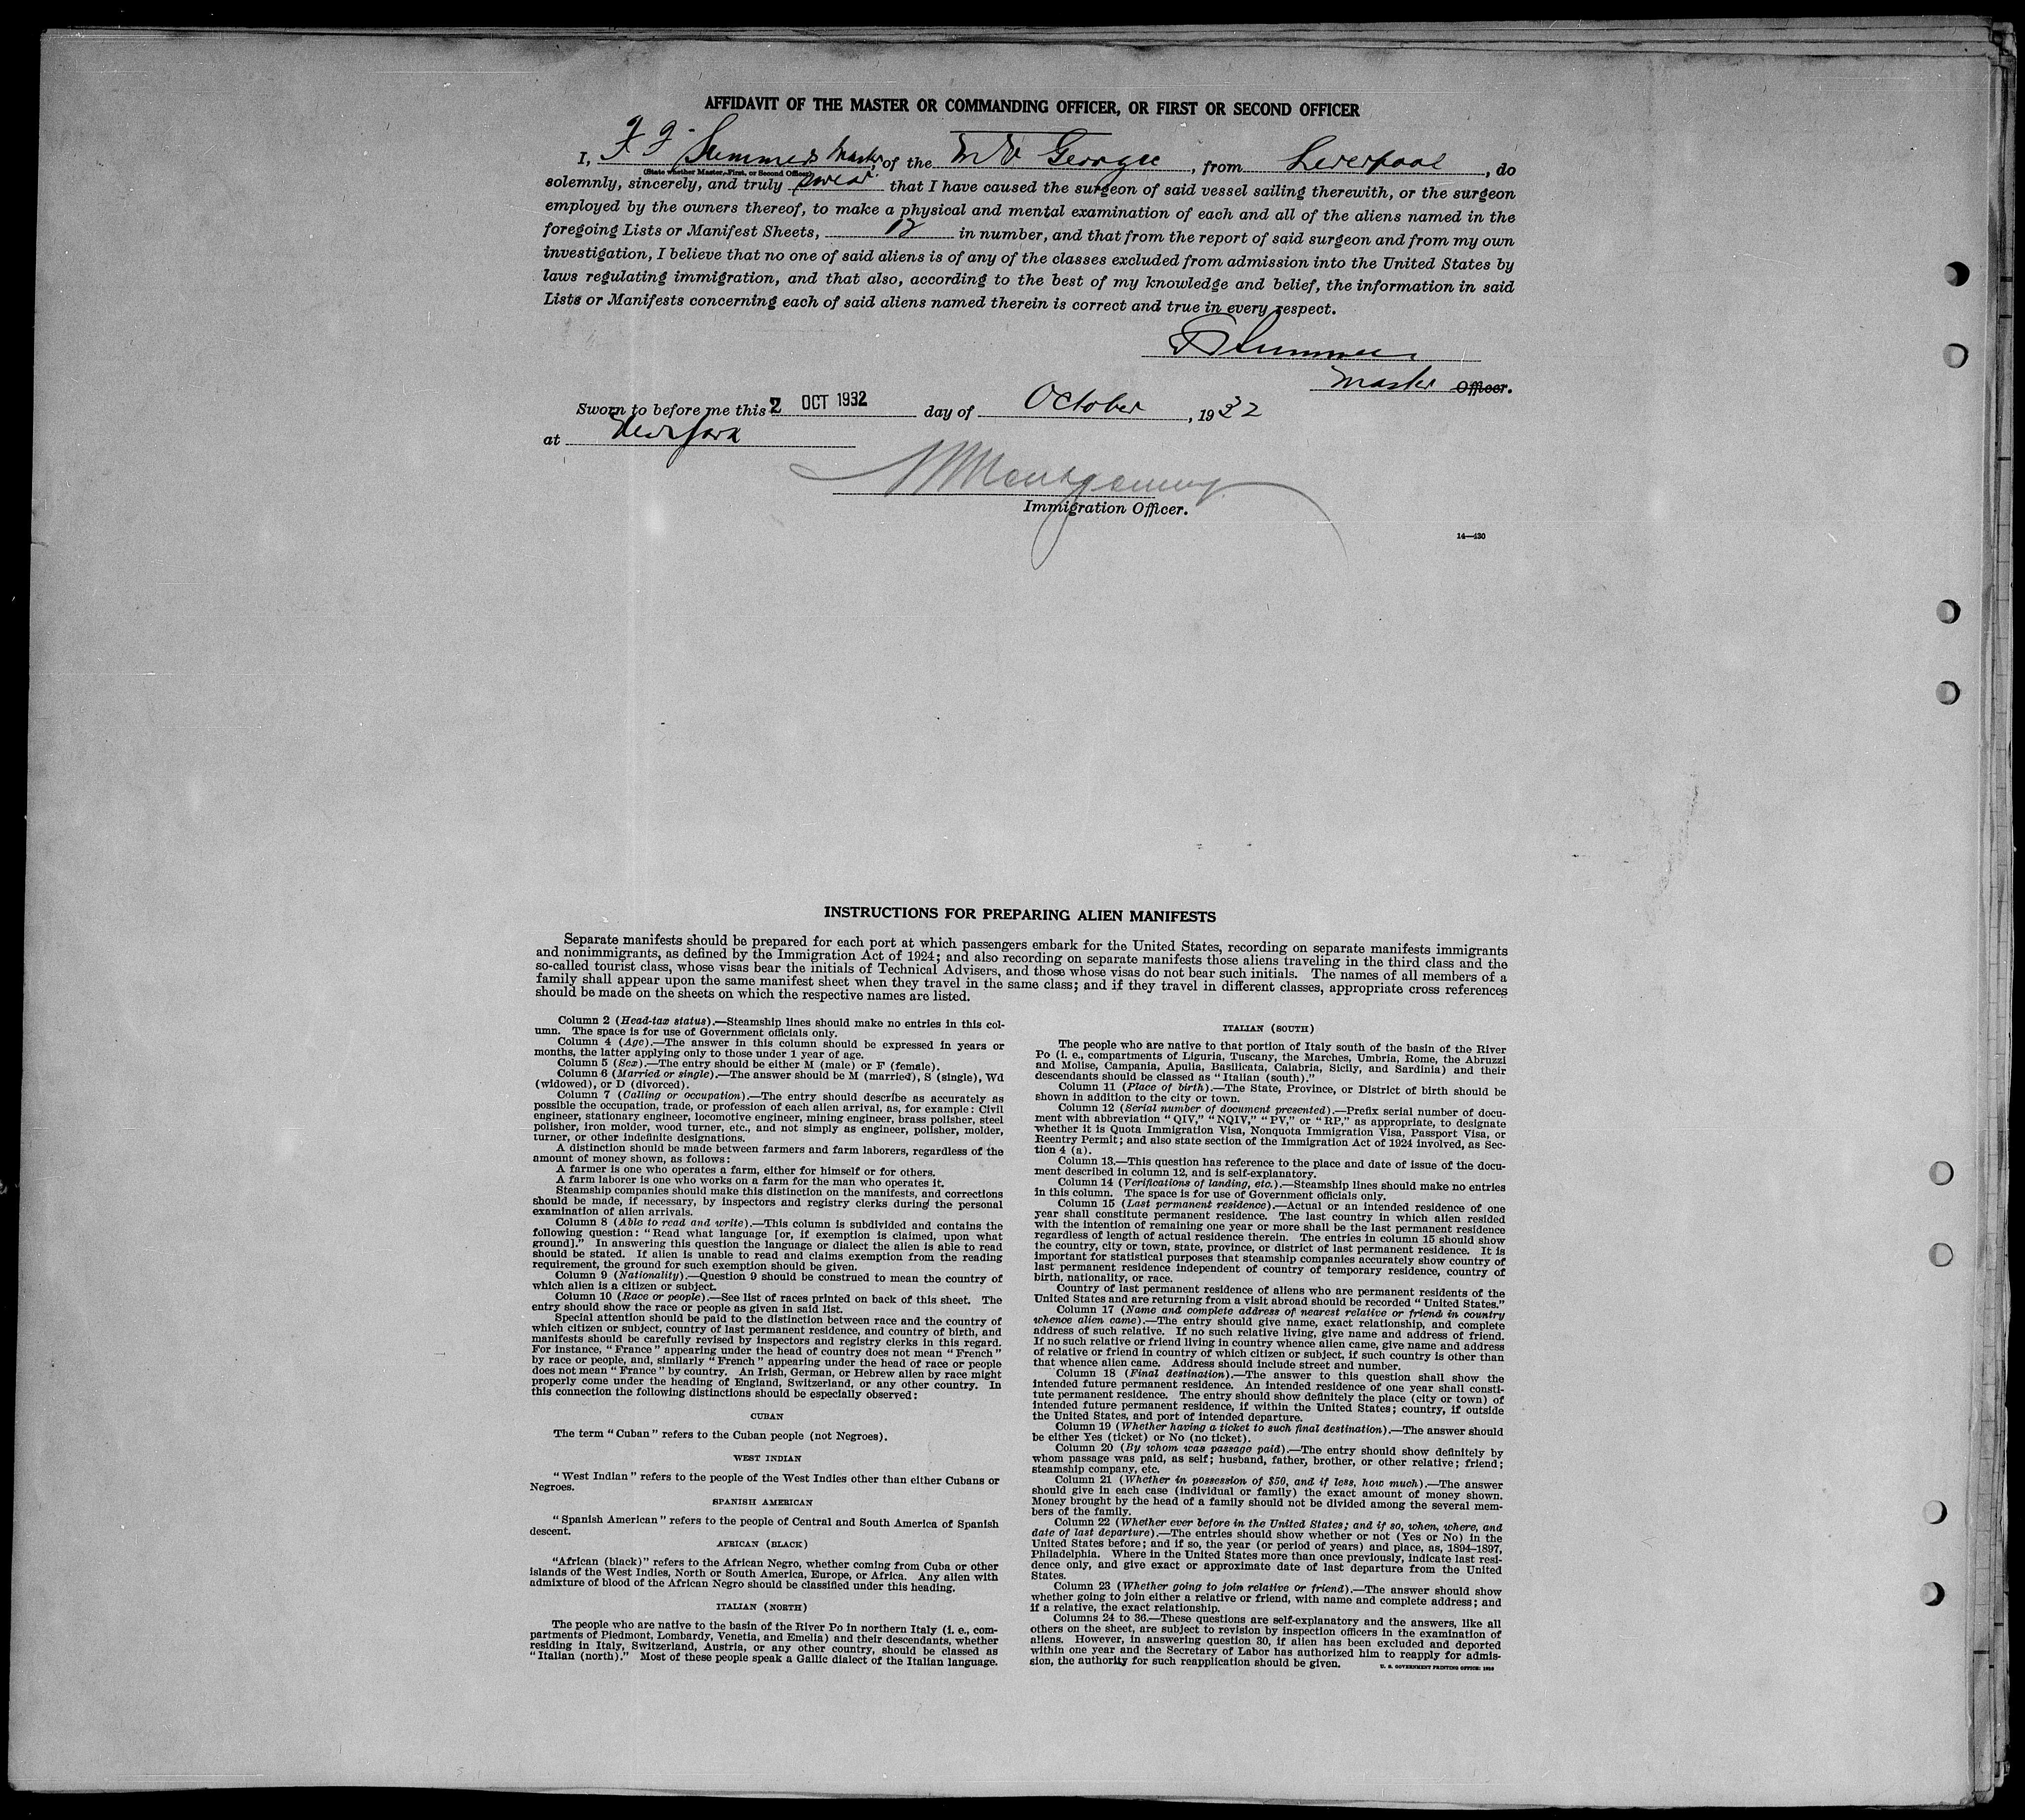 AFFIDAVIT OF THE MASTER OR COMMANDING OFFICER, OR FIRST OR SECOND OFFICER
I, F F Summers Master, of the M V Georgic, from Liverpool, do
(State whether Master, First, or Second Officer)
solemnly, sincerely, and truly swear that I have caused the surgeon of said vessel sailing therewith, or the surgeon
employed by the owners thereof, to make a physical and mental examination of each and all of the aliens named in the
foregoing Lists or Manifest Sheets, in number, and that from the report of said surgeon and from my own
investigation, I believe that no one of said aliens is of any of the classes excluded from admission into the United States by
laws regulating immigration, and that also, according to the best of my knowledge and belief, the information in said
Lists or Manifests concerning each of said aliens named therein is correct and true in every respect.
F F Summers
Master Officer.
Sworn to before me this 2 OCT 1932 day of October, 1932
at New York
Montgomery
Immigration Officer.
14—430
INSTRUCTIONS FOR PREPARING ALIEN MANIFESTS
Separate manifests should be prepared for each port at which passengers embark for the United States, recording on separate manifests immigrants
and nonimmigrants, as defined by the Immigration Act of 1924; and also recording on separate manifests those aliens traveling in the third class and the
so-called tourist class, whose visas bear the initials of Technical Advisers, and those whose visas do not bear such initials. The names of all members of a
family shall appear upon the same manifest sheet when they travel in the same class; and if they travel in different classes, appropriate cross references
should be made on the sheets on which the respective names are listed.
Column 2 (Head-tax status).—Steamship lines should make no entries in this col-
umn. The space is for use of Government officials only.
Column 4 (Age).—The answer in this column should be expressed in years or
months, the latter applying only to those under 1 year of age.
Column 5 (Sex).—The entry should be either M (male) or F (female).
Column 6 (Married or single).—The answer should be M (married), S (single), Wd
(widowed), or D (divorced).
Column 7 (Calling or occupation).—The entry should describe as accurately as
possible the occupation, trade, or profession of each alien arrival, as, for example: Civil
engineer, stationary engineer, locomotive engineer, mining engineer, brass polisher, steel
polisher, iron molder, wood turner, etc., and not simply as engineer, polisher, molder,
turner, or other indefinite designations.
A distinction should be made between farmers and farm laborers, regardless of the
amount of money shown, as follows:
A farmer is one who operates a farm, either for himself or for others.
A farm laborer is one who works on a farm for the man who operates it.
Steamship companies should make this distinction on the manifests, and corrections
should be made, if necessary, by inspectors and registry clerks during the personal
examination of alien arrivals.
Column 8 (Able to read and write).—This column is subdivided and contains the
following question: "Read what language [or, if exemption is claimed, upon what
ground]." In answering this question the language or dialect the alien is able to read
should be stated. If alien is unable to read and claims exemption from the reading
requirement, the ground for such exemption should be given.
Column 9 (Nationality).—Question 9 should be construed to mean the country of
which alien is a citizen or subject.
Column 10 (Race or people).—See list of races printed on back of this sheet. The
entry should show the race or people as given in said list.
Special attention should be paid to the distinction between race and the country of
which citizen or subject, country of last permanent residence, and country of birth, and
manifests should be carefully revised by inspectors and registry clerks in this regard.
For instance, "France" appearing under the head of country does not mean "French"
by race or people, and, similarly "French" appearing under the head of race or people
does not mean "France" by country. An Irish, German, or Hebrew alien by race might
properly come under the heading of England, Switzerland, or any other country. In
this connection the following distinctions should be especially observed:
CUBAN
The term "Cuban" refers to the Cuban people (not Negroes).
WEST INDIAN
"West Indian" refers to the people of the West Indies other than either Cubans or
Negroes.
SPANISH AMERICAN
"Spanish American" refers to the people of Central and South America of Spanish
descent.
AFRICAN (BLACK)
"African (black)" refers to the African Negro, whether coming from Cuba or other
islands of the West Indies, North or South America, Europe, or Africa. Any alien with
admixture of blood of the African Negro should be classified under this heading.
ITALIAN (NORTH)
The people who are native to the basin of the River Po in northern Italy (i. e., com-
partments of Piedmont, Lombardy, Venetia, and Emelia) and their descendants, whether
residing in Italy, Switzerland, Austria, or any other country, should be classed as
"Italian (north)." Most of these people speak a Gallic dialect of the Italian language.
ITALIAN (SOUTH)
The people who are native to that portion of Italy south of the basin of the River
Po (i. e., compartments of Liguria, Tuscany, the Marches, Umbria, Rome, the Abruzzi
and Molise, Campania, Apulia, Basilicata, Calabria, Sicily, and Sardinia) and their
descendants should be classed as "Italian (south)."
Column 11 (Place of birth).—The State, Province, or District of birth should be
shown in addition to the city or town.
Column 12 (Serial number of document presented).—Prefix serial number of docu-
ment with abbreviation "QIV," "NQIV," "PV," or "RP," as appropriate, to designate
whether it is Quota Immigration Visa, Nonquota Immigration Visa, Passport Visa, or
Reentry Permit; and also state section of the Immigration Act of 1924 involved, as Sec-
tion 4 (a).
Column 13.—This question has reference to the place and date of issue of the docu-
ment described in column 12, and is self-explanatory.
Column 14 (Verifications of landing, etc.).—Steamship lines should make no entries
in this column. The space is for use of Government officials only.
Column 15 (Last permanent residence).—Actual or an intended residence of one
year shall constitute permanent residence. The last country in which alien resided
with the intention of remaining one year or more shall be the last permanent residence
regardless of length of actual residence therein. The entries in column 15 should show
the country, city or town, state, province, or district of last permanent residence. It is
important for statistical purposes that steamship companies accurately show country of
last permanent residence independent of country of temporary residence, country of
birth, nationality, or race.
Country of last permanent residence of aliens who are permanent residents of the
United States and are returning from a visit abroad should be recorded "United States."
Column 17 (Name and complete address of nearest relative or friend in country
whence alien came).—The entry should give name, exact relationship, and complete
address of such relative. If no such relative living, give name and address of friend.
If no such relative or friend living in country whence alien came, give name and address
of relative or friend in country of which citizen or subject, if such country is other than
that whence alien came. Address should include street and number.
Column 18 (Final destination).—The answer to this question shall show the
intended future permanent residence. An intended residence of one year shall consti-
tute permanent residence. The entry should show definitely the place (city or town) of
intended future permanent residence, if within the United States; country, if outside
the United States, and port of intended departure.
Column 19 (Whether having a ticket to such final destination).—The answer should
be either Yes (ticket) or No (no ticket).
Column 20 (By whom was passage paid).—The entry should show definitely by
whom passage was paid, as self; husband, father, brother, or other relative; friend;
steamship company, etc.
Column 21 (Whether in possession of $50, and if less, how much).—The answer
should give in each case (individual or family) the exact amount of money shown.
Money brought by the head of a family should not be divided among the several mem-
bers of the family.
Column 22 (Whether ever before in the United States; and if so, when, where, and
date of last departure).—The entries should show whether or not (Yes or No) in the
United States before; and if so, the year (or period of years) and place, as, 1894–1897,
Philadelphia. Where in the United States more than once previously, indicate last resi-
dence only, and give exact or approximate date of last departure from the United
States.
Column 23 (Whether going to join relative or friend).—The answer should show
whether going to join either a relative or friend, with name and complete address; and
if a relative, the exact relationship.
Columns 24 to 36.—These questions are self-explanatory and the answers, like all
others on the sheet, are subject to revision by inspection officers in the examination of
aliens. However, in answering question 30, if alien has been excluded and deported
within one year and the Secretary of Labor has authorized him to reapply for admis-
sion, the authority for such reapplication should be given.
U. S. GOVERNMENT PRINTING OFFICE